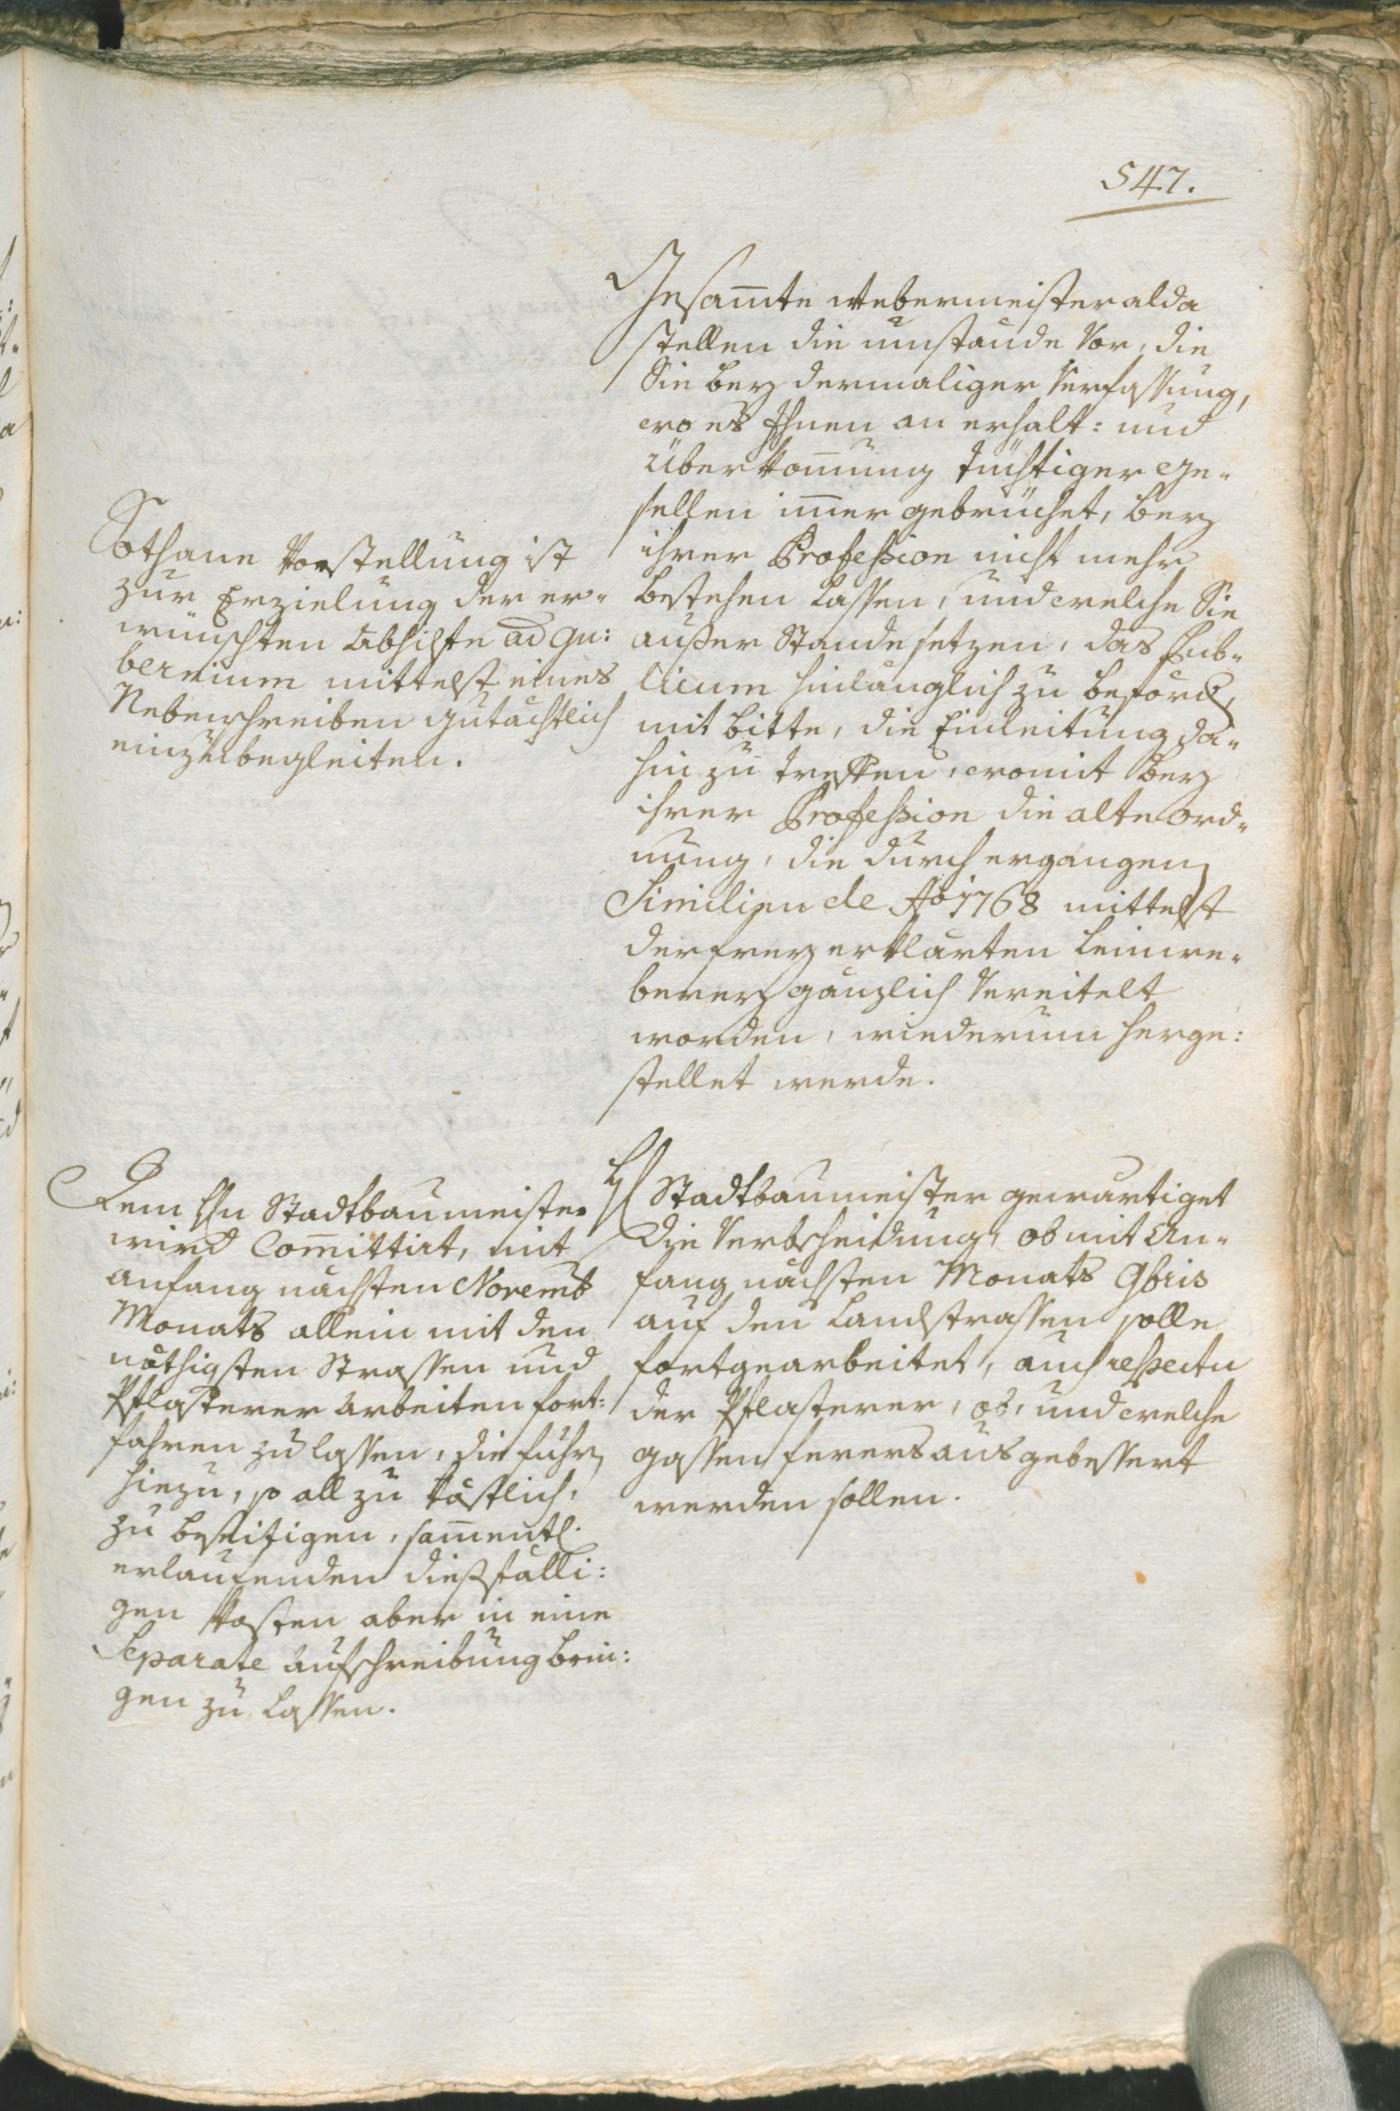 547.
Gesam̄te Webermeister alda
stellen die umstände vor, die
Sie bey dermaliger Verfassung,
wo es Ihnen an erhalt: und
überkom̄ung tüchtiger Ge-
sellen im̄er gebrüchet, bey
ihrer Profession nicht mehr
bestehen lassen, und welche Sie
außer Stande setzen, das Pub-
licum hinlänglich zu beförd.
mit bitte, die Einleitung da-
hin zu treffen, womit bey
ihrer Profession die alte ord-
nung, die durch ergangen
Similien de Aō 1768 mittelst
der frey erklärten Leinwe-
berey gänzlich vereitelt
worden, wiederum herge:
stellet werde.
Sothane Vorstellung ist
zur Erzielung der er-
wünschten Abhilfte ad Gu:
bernium mittelst eines
Nebenschreiben gutächtlich
einzubegleiten.
H Stadtbaumeister gewärtiget
die Verbscheidung, ob mit An-
fang nächsten Monats 9bris
auf den Landstrassen solle
fortgearbeitet, auch respectu
der Pflasterer, ob, und welche
gassen ferers ausgebessert
werden sollen.
Dem Hn Stadtbaumeister
wird Com̄ittirt, mit
anfang nächsten Novemb
Monats allein mit den
nöthigsten Strassen und
Pflasterer Arbeiten fort:
fahren zu lassen, die fuhr
hiezu, so all zu köstlich,
zu beseitigen, sam̄entl.
erlaufenden dießfälli:
gen Kosten aber in eine
Separate Aufschreibung brin:
gen zu lassen.